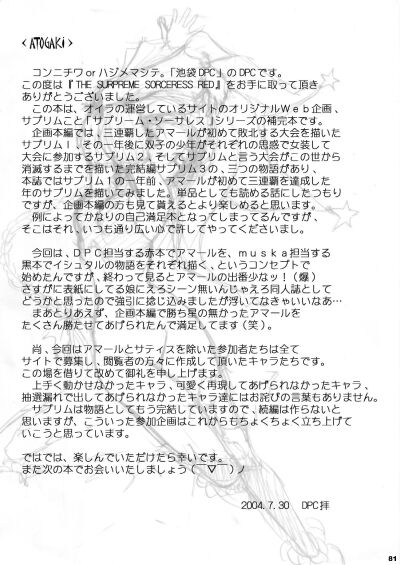 < ATOGAKI >
コンニチワ or ハジメマシテ。「池袋DPC」のDPCです。
この度は『THE SURPREME SORCERESS RED』をお手に取って頂き
ありがとうございました。
この本は、オイラの運営しているサイトのオリジナルWeb企画、
サブリムこと「サブリーム・ソーサレス」シリーズの補完本です。
企画本編では、三連覇したアマールが初めて敗北する大会を描いた
サブリム1、その一年後に双子の少年がそれぞれの思惑で女装して
大会に参加するサブリム2、そしてサブリムと言う大会がこの世から
消滅するまでを描いた完結編サブリム3の、三つの物語があり、
本誌ではサブリム1の一年前、アマールが初めて三連覇を達成した
年のサブリムを描いてみました。単品としても読める話にしたつもり
ですが、企画本編の方も見て貰えるとより楽しめると思います。
例によってかなりの自己満足本となってしまってるんですが、
そこはそれ、いつも通り広い心で許してやってくださいまし。
今回は、DPC担当する赤本でアマールを、muska担当する
黒本でイシュタルの物語をそれぞれ描く、というコンセプトで
始めたんですが、終わって見るとアマールの出番少なッ!(爆)
さすがに表紙にしてる娘にえろシーン無いんじゃえろ同人誌として
どうかと思ったので強引に捻じ込みましたが浮いてなきゃいいなあ…
まあとりあえず、企画本編で勝ち星の無かったアマールを
たくさん勝たせてあげられたんで満足してます(笑)。
尚、今回はアマールとサティスを除いた参加者たちは全て
サイトで募集し、閲覧者の方々に作成して頂いたキャラたちです。
この場を借りて改めて御礼を申し上げます。
上手く動かせなかったキャラ、可愛く再現してあげられなかったキャラ、
抽選漏れで出してあげられなかったキャラ達にはお詫びの言葉もありません。
サブリムは物語としてもう完結していますので、続編は作らないと
思いますが、こういった参加企画はこれからもちょくちょく立ち上げて
いこうと思っています。
ではでは、楽しんでいただけたら幸いです。
また次の本でお会いいたしましょう(￣▽￣)ノ
2004.7.30 DPC拝
81